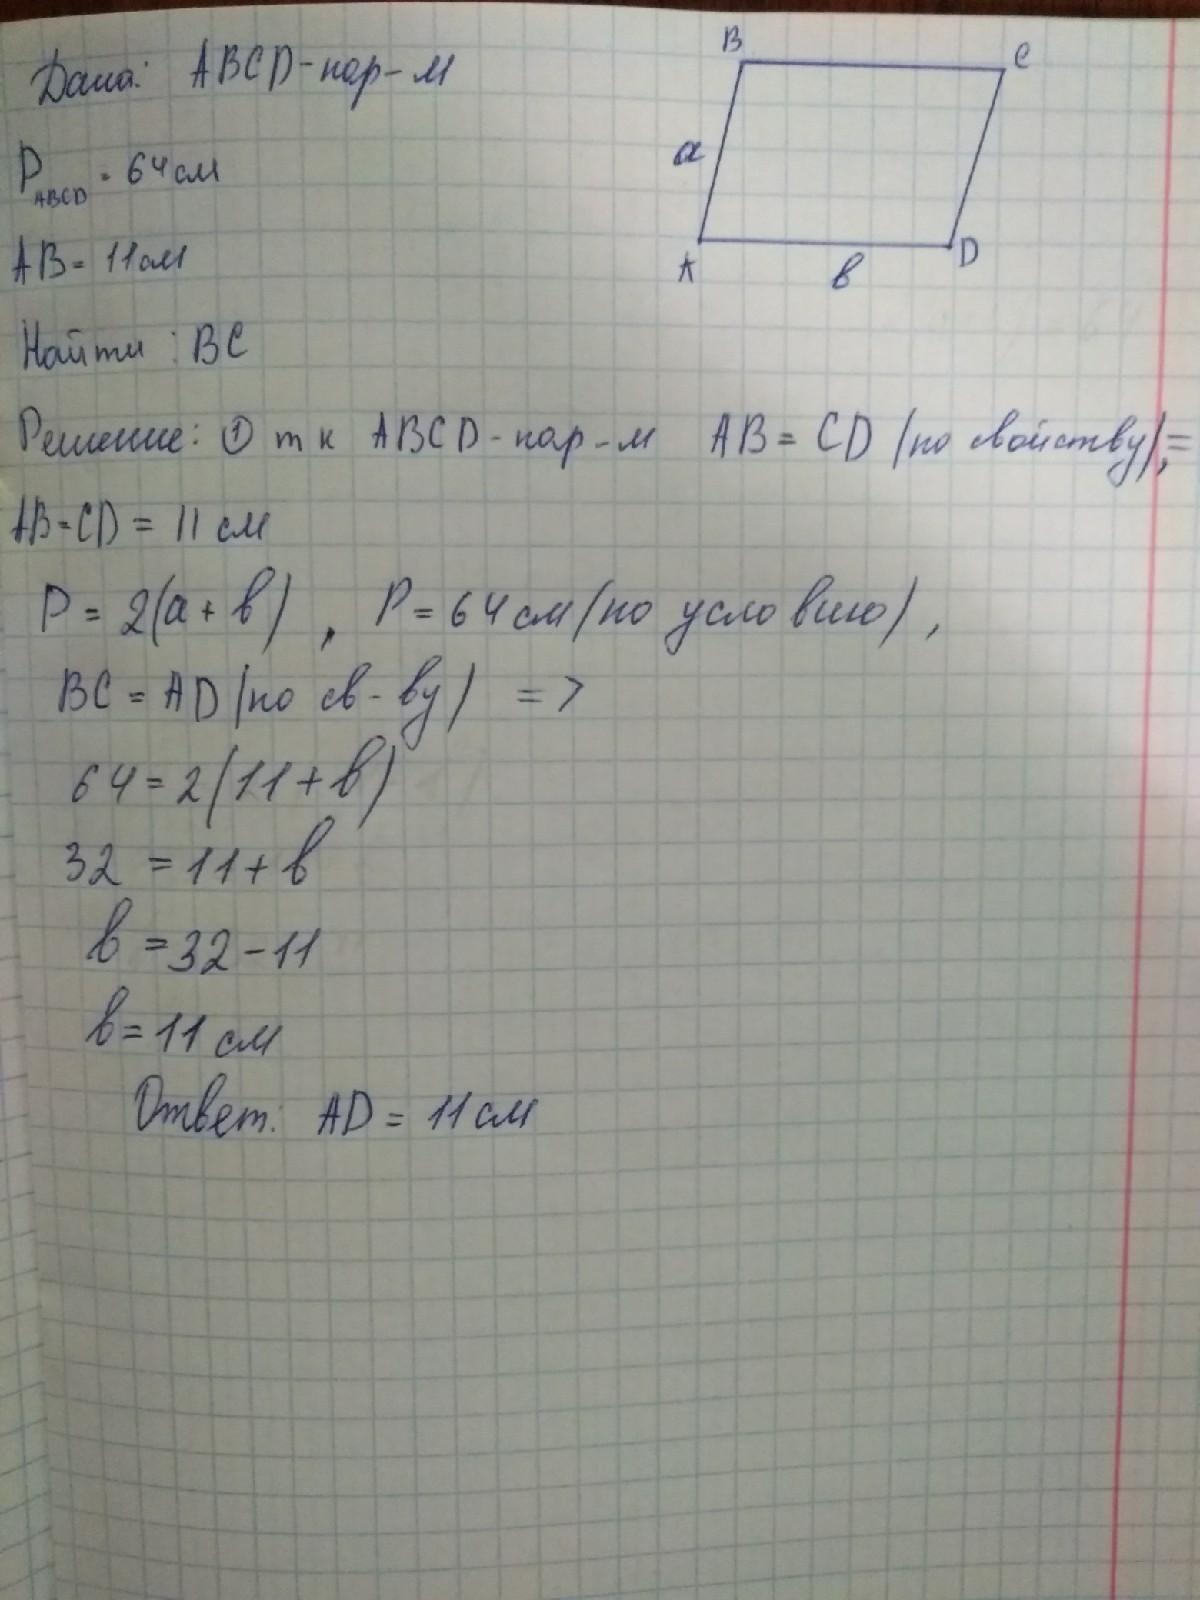 Дано: ABCD-пар-м
P ABCD = 64см
AB = 11см
Найти : BC
B
C
a
A
в
D
Решение: ① т к ABCD-пар-м AB = CD (по свойству),=
AB=CD = 11 см
P = 2(a + в) , P = 64 см (по условию) ,
BC = AD (по св-ву) =>
64 = 2(11 + в)
32 = 11 + в
в = 32 - 11
в = 11 см
Ответ: AD = 11 см